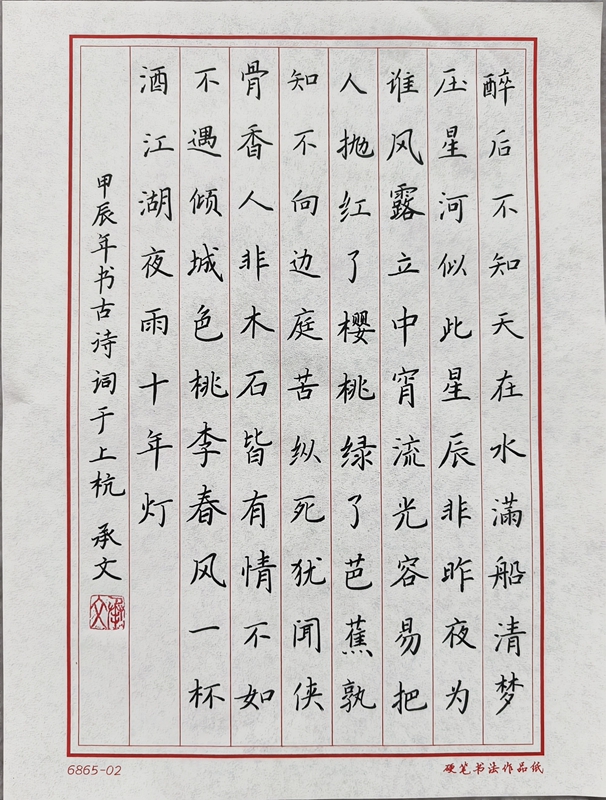 醉后不知天在水满船清梦
压星河似此星辰非昨夜为
谁风露立中宵流光容易把
人抛红了樱桃绿了芭蕉孰
知不向边庭苦纵死犹闻侠
骨香人非木石皆有情不如
不遇倾城色桃李春风一杯
酒江湖夜雨十年灯
甲辰年书古诗词于上杭 承文
承文
6865-02
硬笔书法作品纸